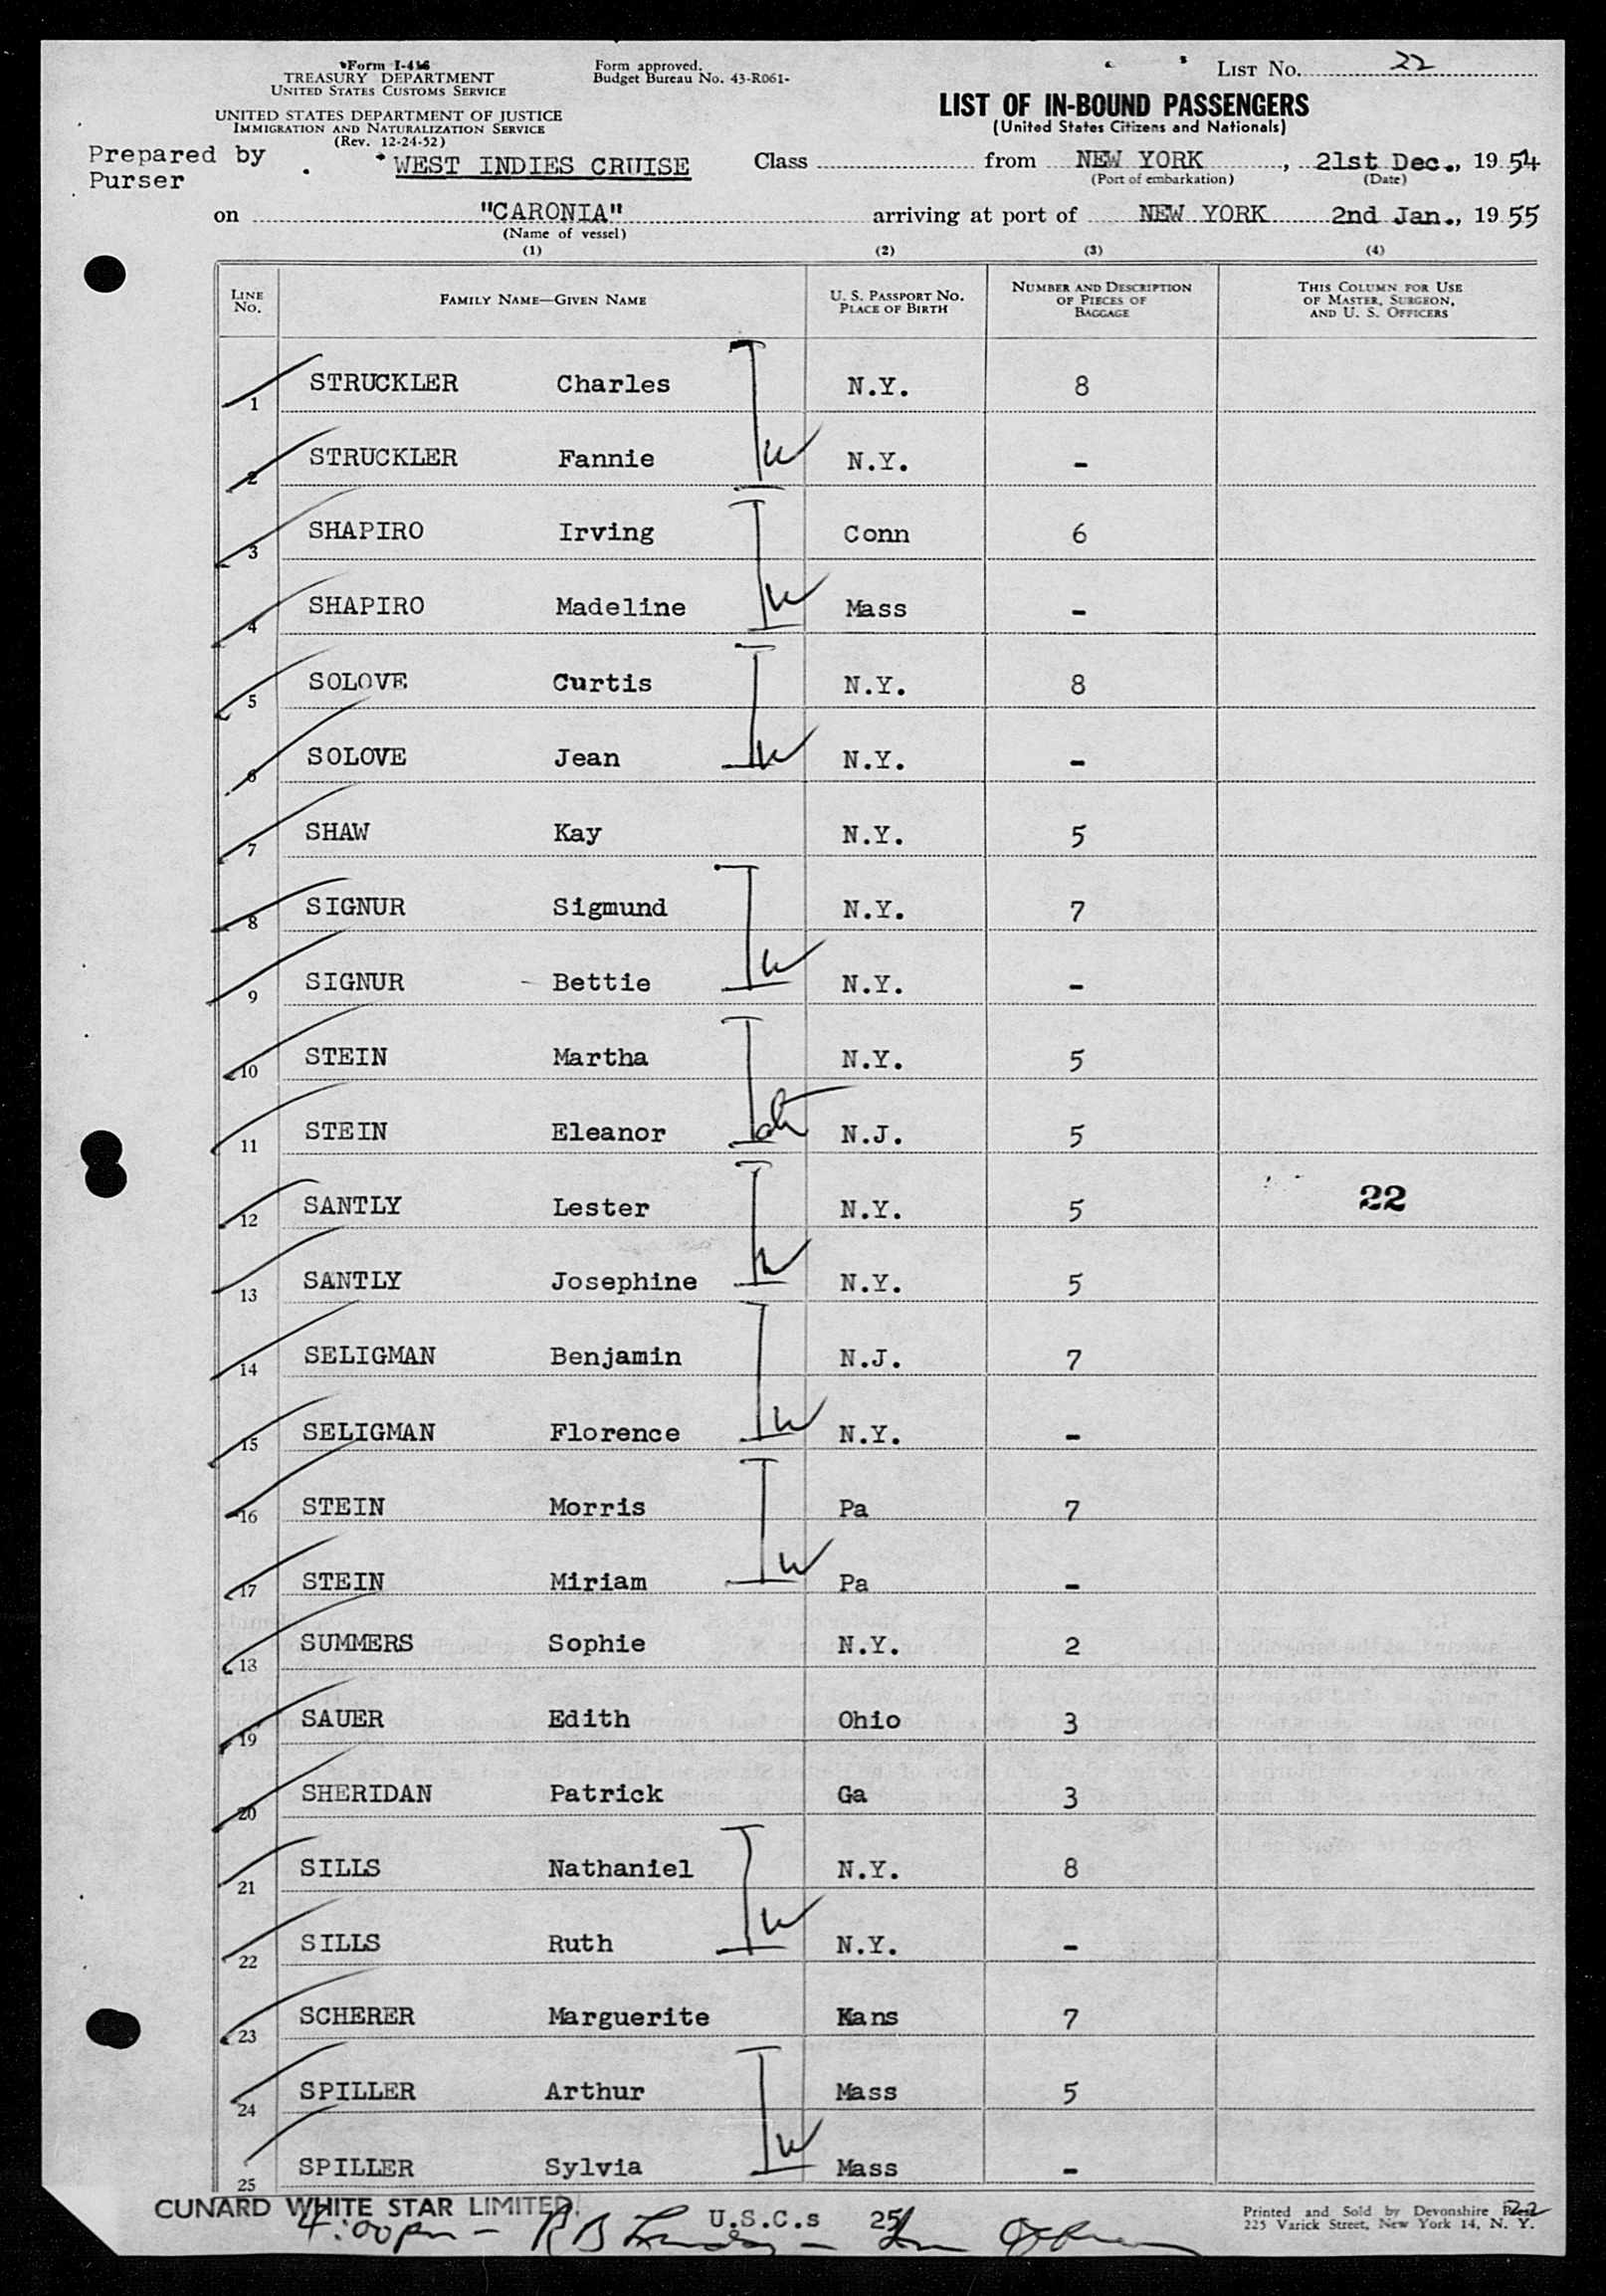 Form I-416
TREASURY DEPARTMENT
UNITED STATES CUSTOMS SERVICE
UNITED STATES DEPARTMENT OF JUSTICE
IMMIGRATION AND NATURALIZATION SERVICE
(Rev. 12-24-52)
Form approved.
Budget Bureau No. 43-R061-
LIST No. 22
LIST OF IN-BOUND PASSENGERS
(United States Citizens and Nationals)
Prepared by
Purser
WEST INDIES CRUISE Class from NEW YORK, 21st Dec., 1954
(Port of embarkation) (Date)
on "CARONIA" arriving at port of NEW YORK 2nd Jan., 1955
(Name of vessel)
(1) (2) (3) (4)
LINE No. FAMILY NAME—GIVEN NAME U. S. PASSPORT No. PLACE OF BIRTH NUMBER AND DESCRIPTION OF PIECES OF BAGGAGE THIS COLUMN FOR USE OF MASTER, SURGEON, AND U. S. OFFICERS
1 STRUCKLER Charles N.Y. 8
2 STRUCKLER Fannie W N.Y. -
3 SHAPIRO Irving Conn 6
4 SHAPIRO Madeline W Mass -
5 SOLOVE Curtis N.Y. 8
6 SOLOVE Jean W N.Y. -
7 SHAW Kay N.Y. 5
8 SIGNUR Sigmund N.Y. 7
9 SIGNUR Bettie W N.Y. -
10 STEIN Martha N.Y. 5
11 STEIN Eleanor N.J. 5
12 SANTLY Lester N.Y. 5 22
13 SANTLY Josephine W N.Y. 5
14 SELIGMAN Benjamin N.J. 7
15 SELIGMAN Florence W N.Y. -
16 STEIN Morris Pa 7
17 STEIN Miriam W Pa -
18 SUMMERS Sophie N.Y. 2
19 SAUER Edith Ohio 3
20 SHERIDAN Patrick Ga 3
21 SILLS Nathaniel N.Y. 8
22 SILLS Ruth W N.Y. -
23 SCHERER Marguerite Kans 7
24 SPILLER Arthur Mass 5
25 SPILLER Sylvia W Mass -
CUNARD WHITE STAR LIMITED.
U.S.C.s 25
4:00 pm - R B
Printed and Sold by Devonshire Press
225 Varick Street, New York 14, N. Y.
22